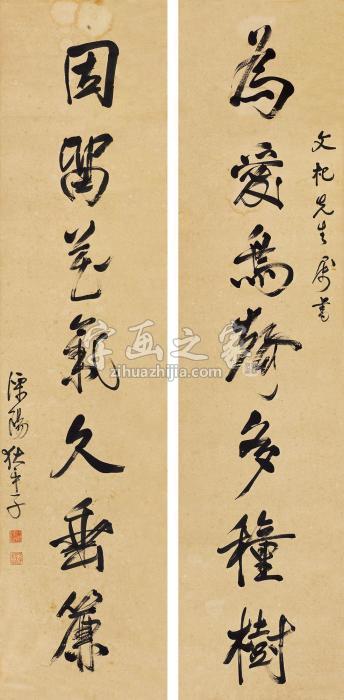 文杞先生属書
為愛鳥聲多種樹
因留花氣久垂簾
溧陽狄平子
字画之家
zihuazhijia.com